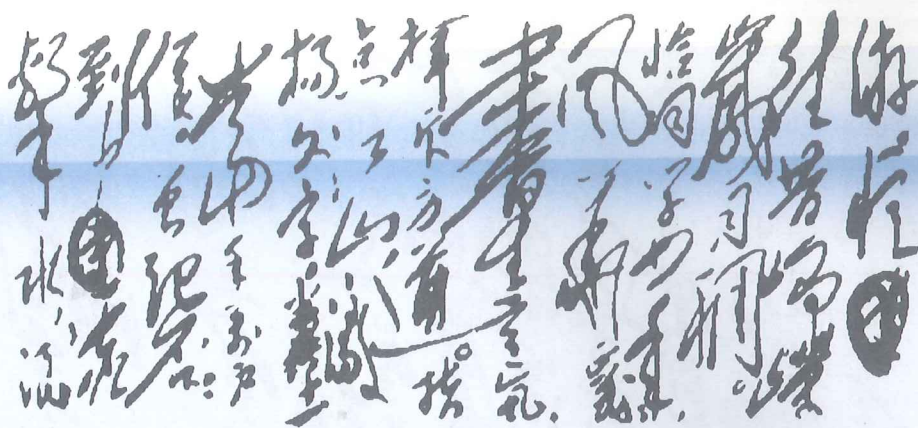 游忆
往昔峥嵘
岁月稠
恰同学少年
风华正茂
书生意气
挥斥方遒指
点江山激
扬文字粪土
当年万户
侯曾记否
到中流
击水浪